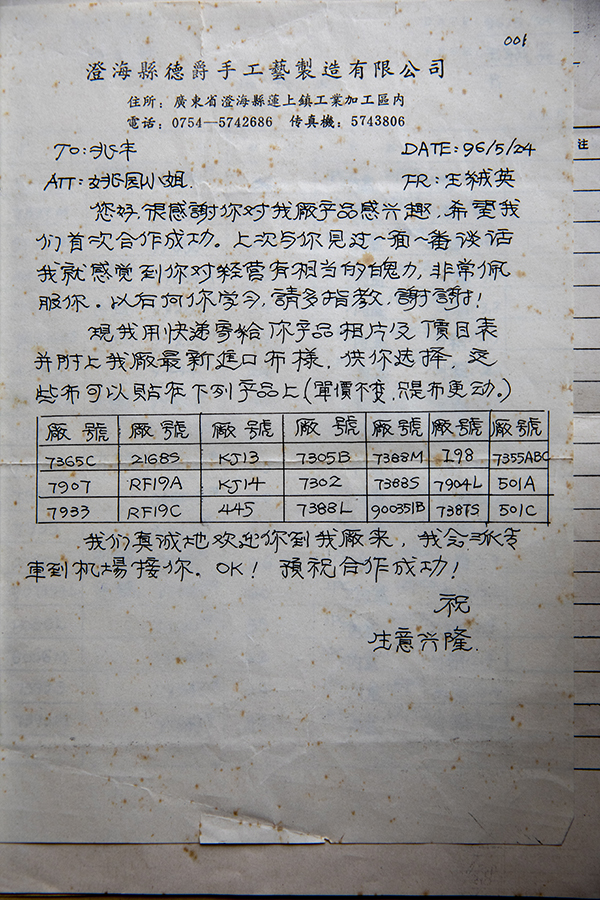 001
澄海縣德爵手工藝製造有限公司
住所：廣東省澄海縣蓮上鎮工業加工區內
電话：0754—5742686 传真機：5743806
TO：兆丰
DATE：96/5/24
ATT：姚凤小姐.
FR：王绒英
您好，很感謝你对我厰产品感兴趣，希望我
们首次合作成功。上次与你見过一面一番谈话
我就感觉到你对经营有相当的魄力，非常佩
服你。以后向你学今，請多指教，謝謝！
現我用快递寄给你产品相片及價目表
并附上我厰最新進口布樣，供你选择，这
些布可以貼在下列产品上（單價不变，只是布更动。）
厰號 厰號 厰號 厰號 厰號 厰號 厰號
7365C 2168S KJ13 7305B 7388M 798 7355ABC
7907 RF19A KJ14 7302 7388S 7904L 501A
7933 RF19C 445 7388L 900351B 738TS 501C
我们真诚地欢迎你到我厰来，我会派
車到机場接你。OK！預祝合作成功！
祝
生意兴隆.
注